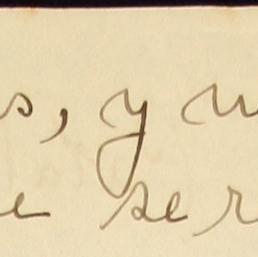 s, y
e ser